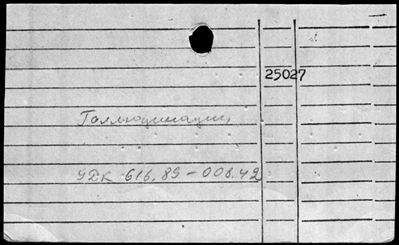 25027
Галлюцинации
УДК 616.89-008.42